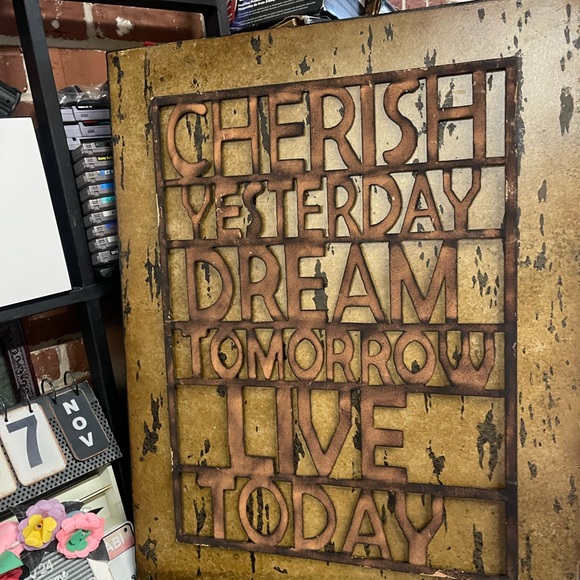 CHERISH
YESTERDAY
DREAM
TOMORROW
LIVE
TODAY
7
NOV